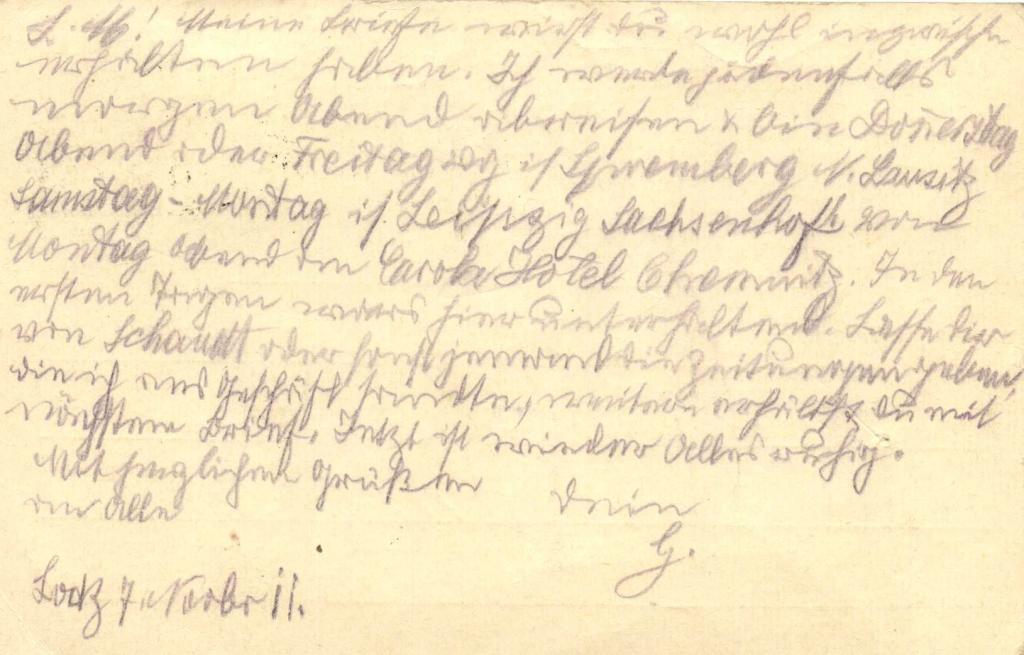 L. M! Meine Briefe wirst du wohl inzwischen
erhalten haben. Ich werde jedenfalls
morgen Abend abreisen & bin Donnerstag
Abend oder Freitag in Spremberg N. Lausitz
Samstag - Montag in Leipzig Sachsenhof & von
Montag Abend an Carola Hotel Chemnitz. In den
ersten Tagen wars hier unterhaltend. Lasse dir
von Schaudt oder sonst jemand die Zeitungen geben,
die ich ans Geschäft sandte, weitere erhältst du mit
nächstem Brief. Jetzt ist wieder Alles ruhig.
Mit herzlichen Grüßen
an Alle Dein
G.
Lodz 7. Novbr 11.